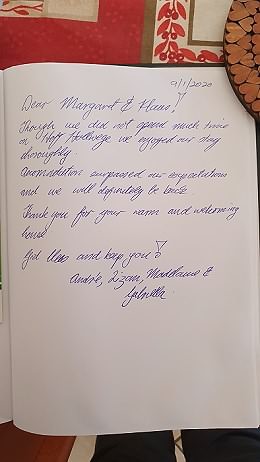 9/1/2020
Dear Margaret & Klaas!
Though we did not spend much time
on Hoff Hollwege we enjoyed our stay
thoroughly.
Accomodation surpassed our expectations
and we will definitely be back.
Thank you for your warm and welcoming
house
God bless and keep you!
André, Lizan, Madelaine &